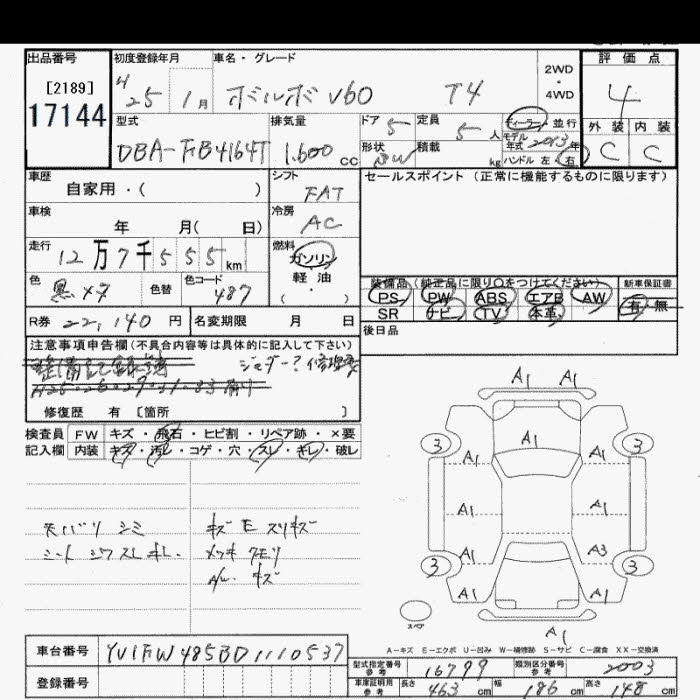 出品番号 初度登録年月 車名・グレード 評価点
[2189] H 25年 1月 ボルボ V60 T4 2WD・4WD 4
17144
型式 排気量 ドア 5 定員 5人 ディーラー・並行 外装 内装
DBA-FB4164T 1.600cc 形状 SW 積載 kg モデル年式 2013年 ハンドル 左・右 C C
車歴 シフト セールスポイント (正常に機能するものに限ります)
自家用・( ) FAT
車検 冷房
年 月( 日) AC
走行 燃料
12万7千555km ガソリン
軽・油
( ・ )
色 色替 色コード
黒メタ 487
装備品(純正品に限り○をつけてください) 新車保証書
PS PW ABS エアB AW 有・無
SR ナビ TV 本革
R券 22,140円 名変期限 月 日
後日品
注意事項申告欄(不具合内容等は具体的に記入して下さい)
整備記録簿
修復歴 有 [箇所 ]
検査員 FW キズ・飛石・ヒビ割・リペア跡・×要
記入欄 内装 キズ・汚レ・コゲ・穴・スレ・キレ・破レ
天バリ シミ キズ E スリキズ
シート シワ スレ キレ. メッキ クモリ
A/W キズ
A1 A1
A1
3 3
A1 A1
A1 A1
A1 A3
3 3
A1 A1
スペア
A1
A-キズ E-エクボ U-凹み W-補修跡 S-サビ C-腐食 XX-交換済
車台番号 YV1FW485BD1110537
登録番号
型式指定番号 参考 16799 類別区分番号 参考 2003
車庫証明用 参考 長さ 463cm 幅 186cm 高さ 148cm